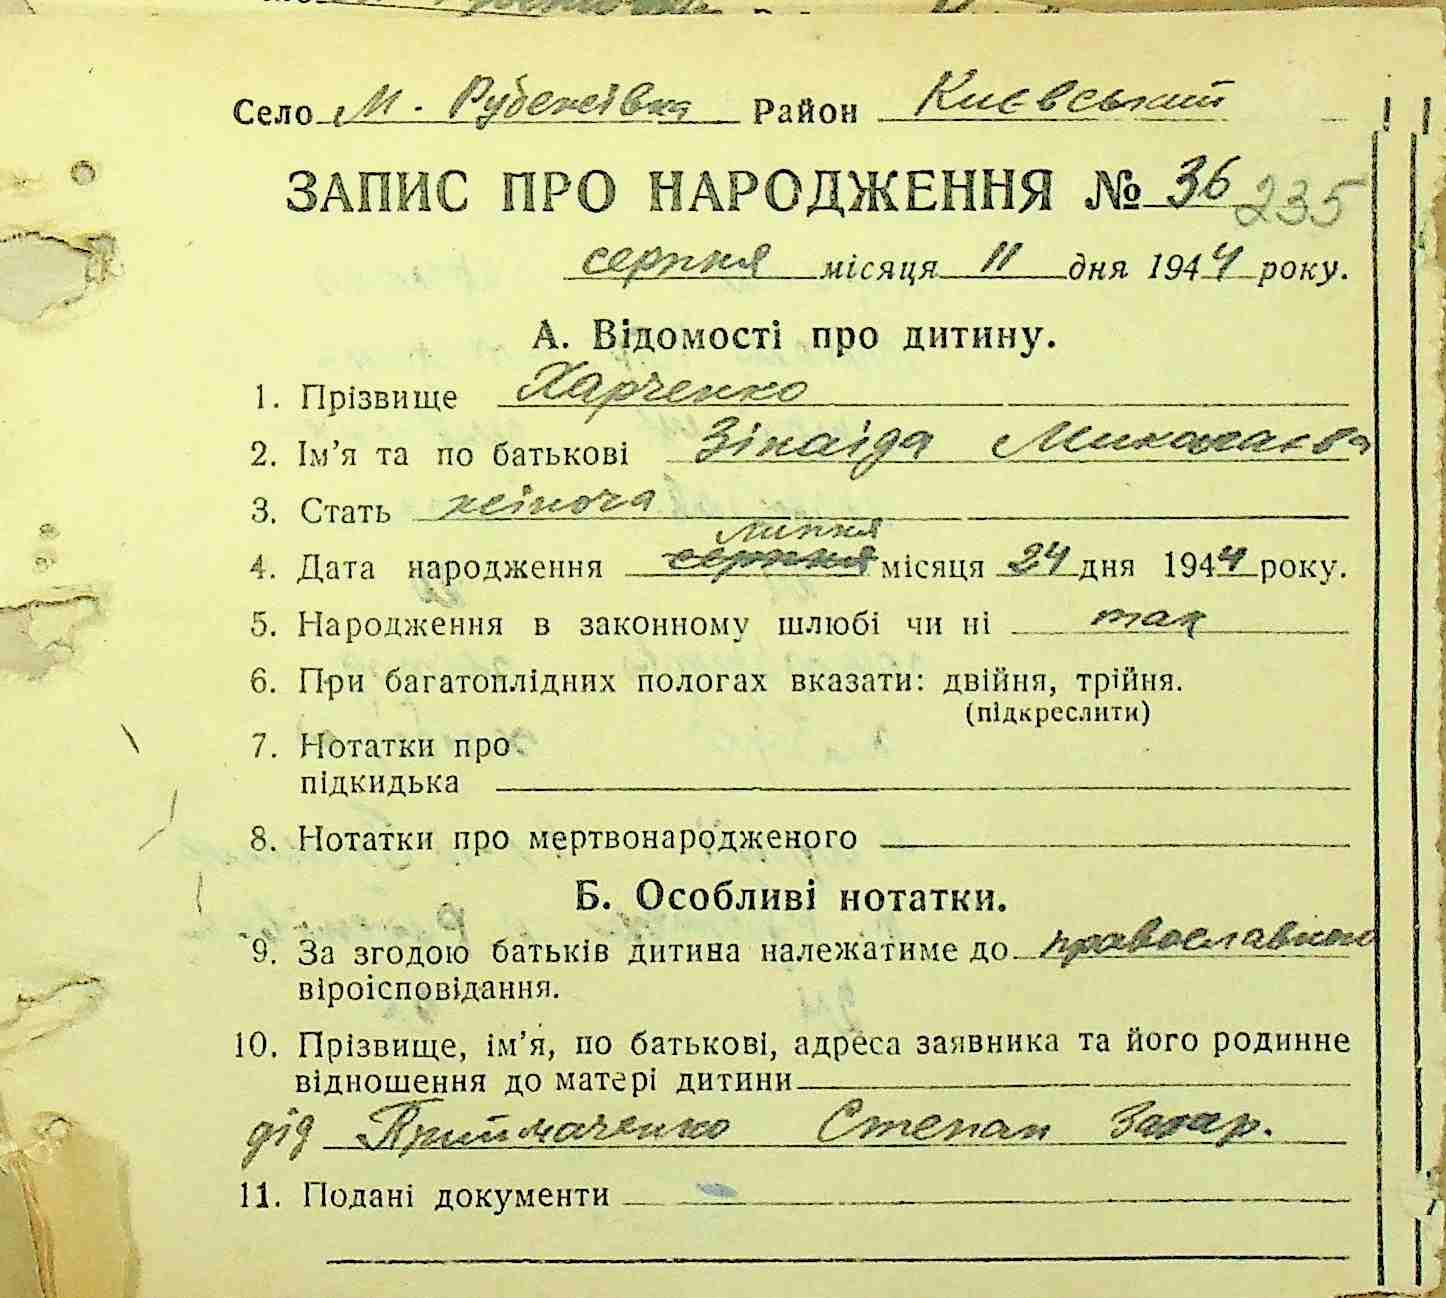 Село М. Рубенівка Район Києвський
ЗАПИС ПРО НАРОДЖЕННЯ № 36 235
серпня місяця 11 дня 1944 року.
А. Відомості про дитину.
1. Прізвище Харченко
2. Ім'я та по батькові Зінаіда Миколаєва
3. Стать жіноча
липня
4. Дата народження серпня місяця 24 дня 1944 року.
5. Народження в законному шлюбі чи ні так
6. При багатоплідних пологах вказати: двійня, трійня.
(підкреслити)
7. Нотатки про
підкидька
8. Нотатки про мертвонародженого
Б. Особливі нотатки.
9. За згодою батьків дитина належатиме до православного
віроісповідання.
10. Прізвище, ім'я, по батькові, адреса заявника та його родинне
відношення до матері дитини
дід Приймаченко Степан Захар.
11. Подані документи